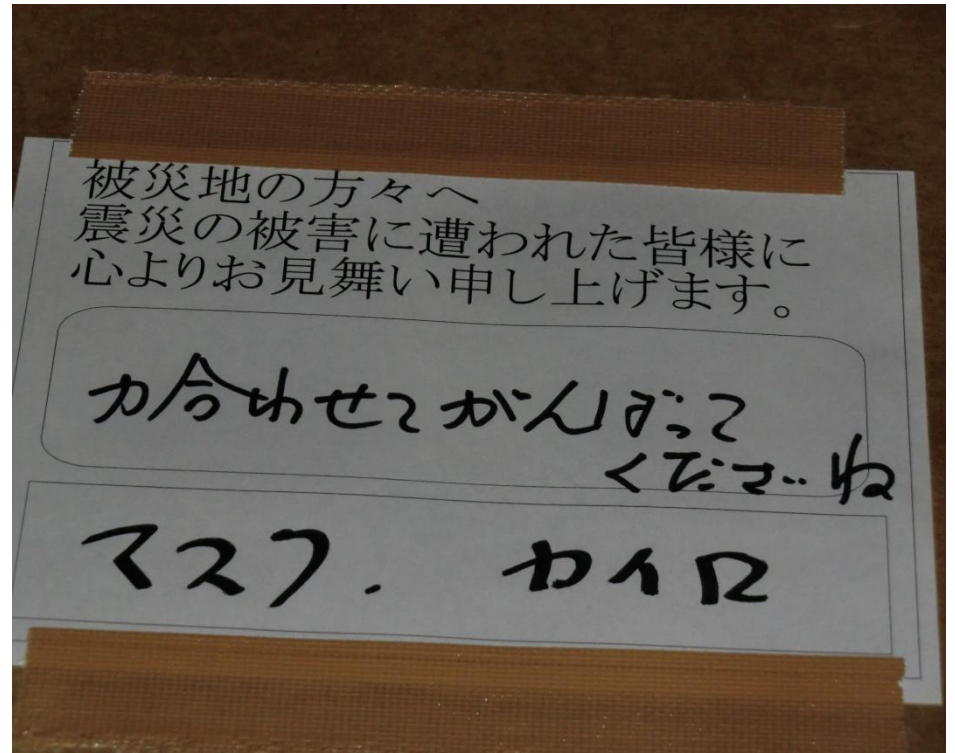 被災地の方々へ
震災の被害に遭われた皆様に
心よりお見舞い申し上げます。
力合わせてがんばって
くださいね
マスク. カイロ